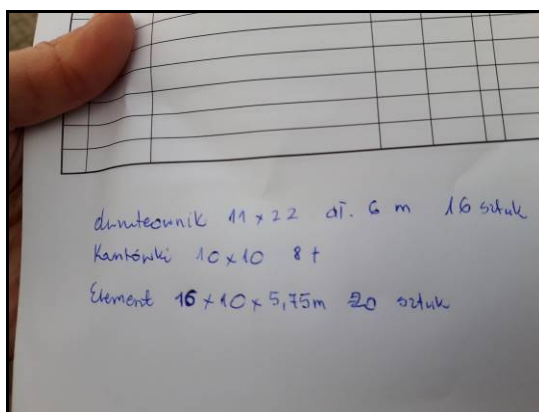 dwuteownik 11 x 22 dł. 6 m 16 sztuk
Kantówki 10x10 8 t
Element 16 x 10 x 5,75m 20 sztuk